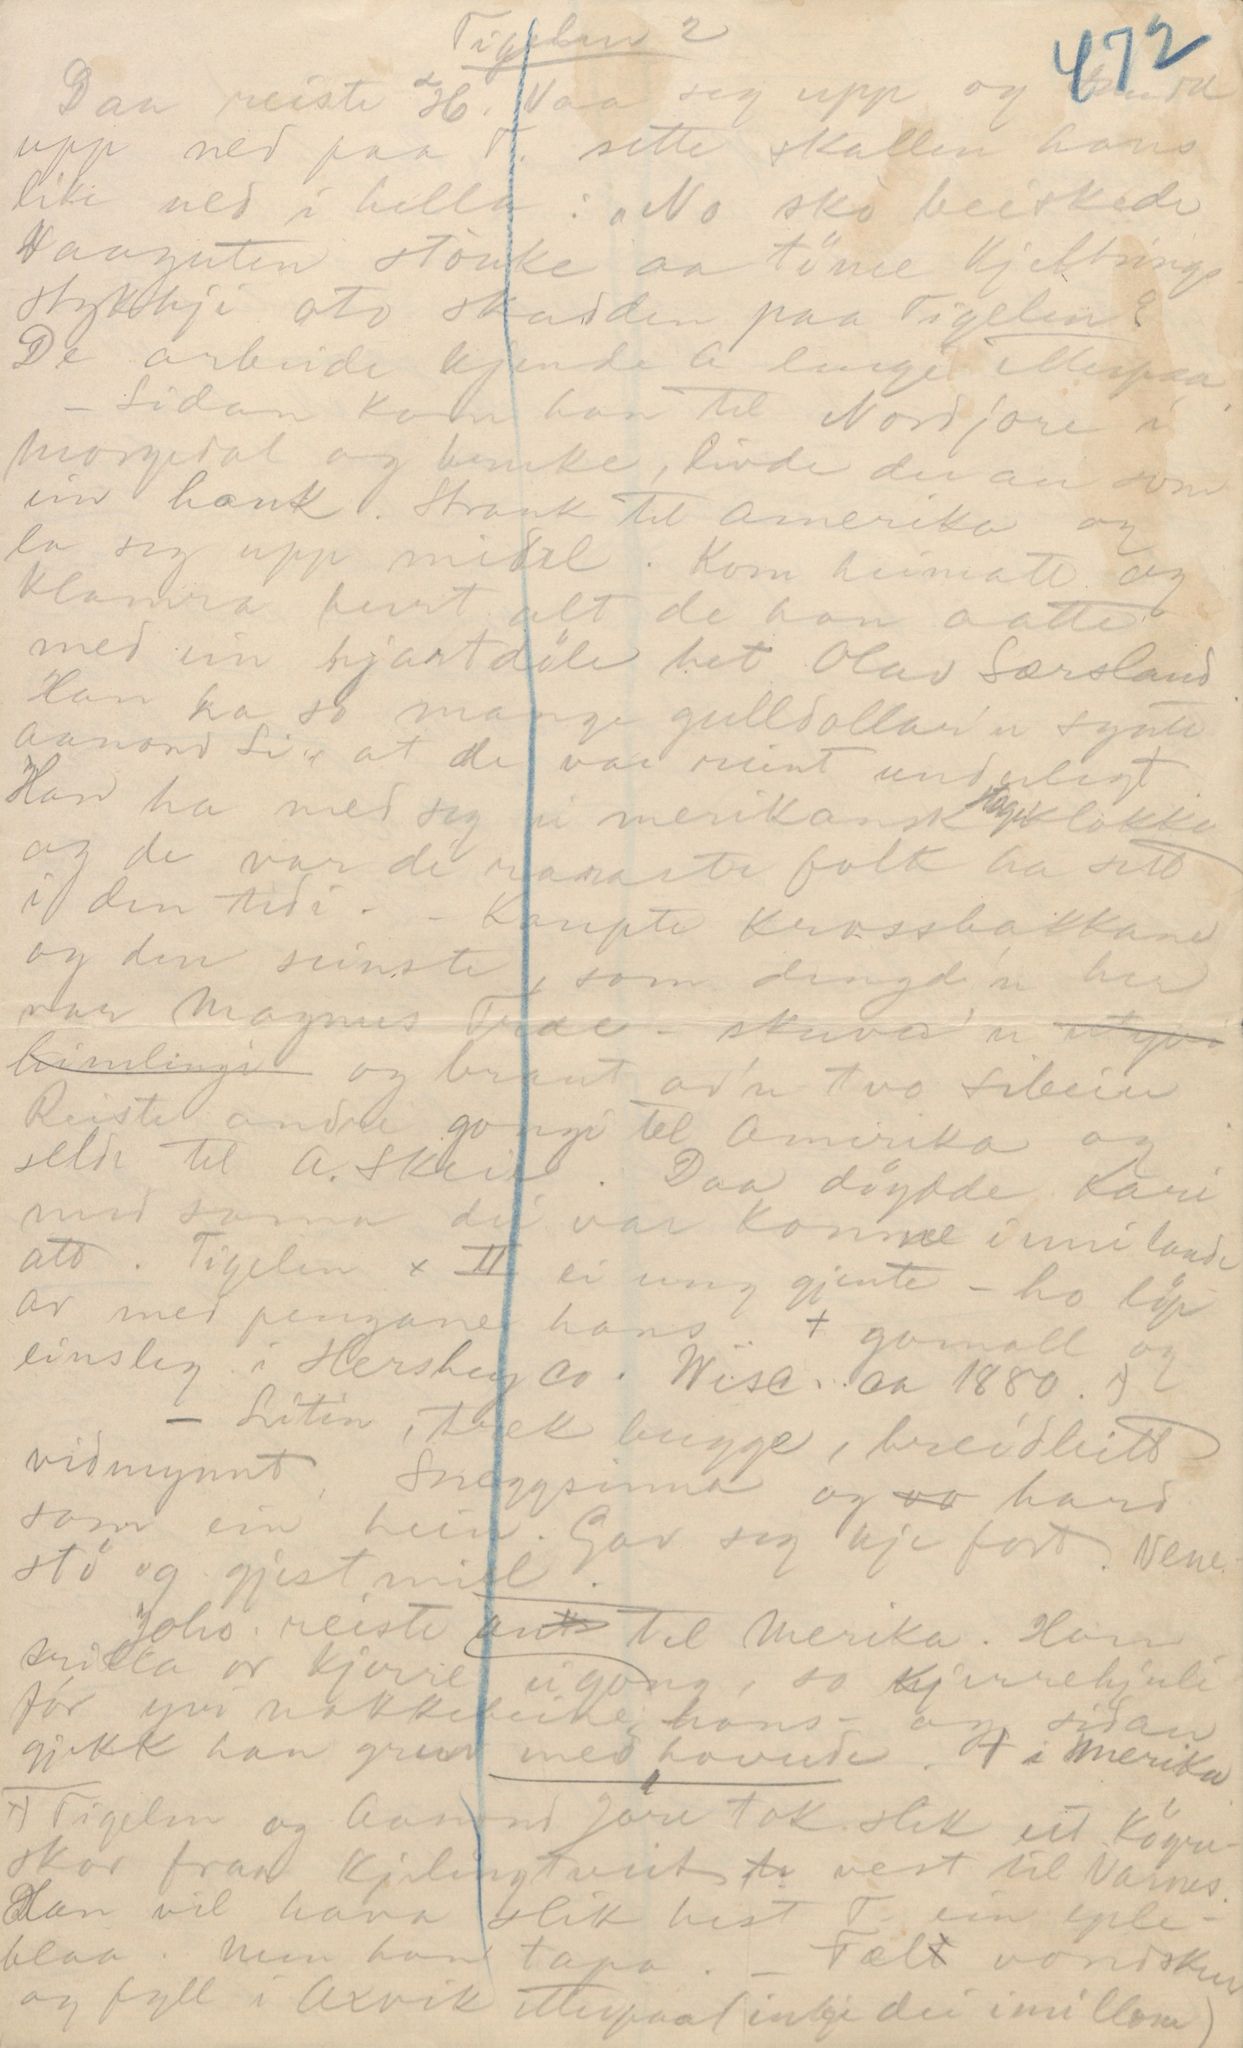 Tigelen 2
472
Daa reiste H. Vaa seg upp og
upp ned paa T. sette skallen hans
like ned i hella: "No sko beiskede
Vaaguten stöuke aa töme Kjeltrings
stykkji oto skadden paa Tigelen"
De arbeide kjende A lengi ettepaa
– Sidan kom han til Nordjore i
Morgedal og bruke, livde der au som
ein hank. Strauk til Amerika og
la seg upp midel. Kom heimatt og
Klamra burt alt de han aatte
med ein hjartdöle het Olav Særsland
Han ha so mange gulldollar'n synte
aanond Si.. at de var reint underlegt
Han ha med seg ei merikansk stageklokke
og de var de raraste folk ha sett
i den tidi. – Kaupte Krossbakkane
og den seinste, som dengd'n her
var Magnus Træe – skuva'n utyvi
himlingi og braut ad'n tvo sibein
Reiste andre gongi til Amerika og
selde til A. Skeie. Daa döydde Kari
med sama dei var komne inni lande
att. Tigelen x II ei ung gjente – ho löp
av med pengane hans. + gamall og
einsleg i Hershey Co. Wisc. ca 1880. x)
– Liten, tvek bugge, breidleitt
vidmynnt, Sneggsinna og va hard
som ein hein. Gav seg kje fort. Neve-
stö og gjestmild.
Joho. reiste au til Merika. Han
or kjerre eigong, so kjerrehjuli
for yvi nakkebeine hans – og sidan
gjekk han gruv med hovude. + i Merika
x) Tigelen og Aanond Jore tok slik eit Kögre-
skor fraa Kjelingtveit to vest til Narnes.
Han vil hava slik hest T. ein eple-
blaa. Men han tapa. – Fælt vondskur
og fyll i Axvik ettepaa (inkje dei imillom)